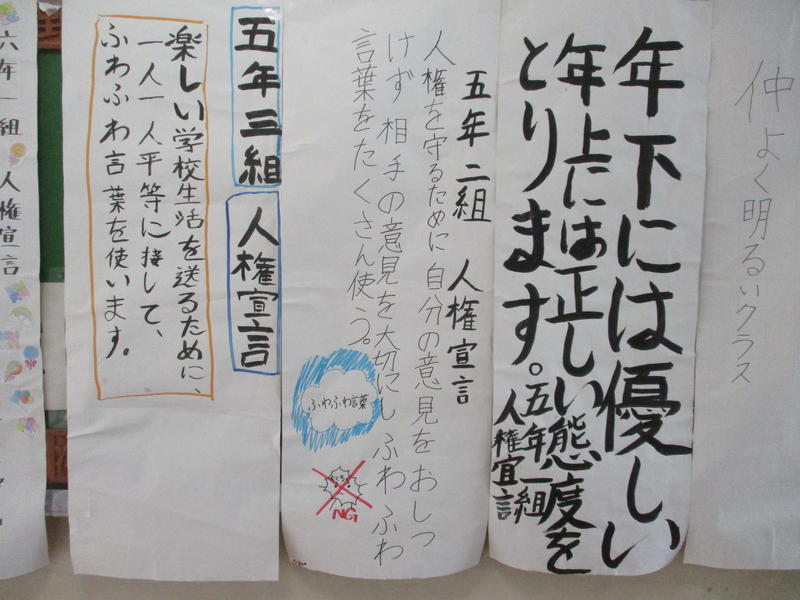 仲よく明るいクラス
年下には優しい
年上には正しい態度を
とります。
五年一組
人権宣言
五年二組 人権宣言
人権を守るために自分の意見をおしつ
けず相手の意見を大切にしふわふわ
言葉をたくさん使う。
ふわふわ言葉
NG
五年三組 人権宣言
楽しい学校生活を送るために、
一人一人平等に接して、
ふわふわ言葉を使います。
六年一組 人権宣言